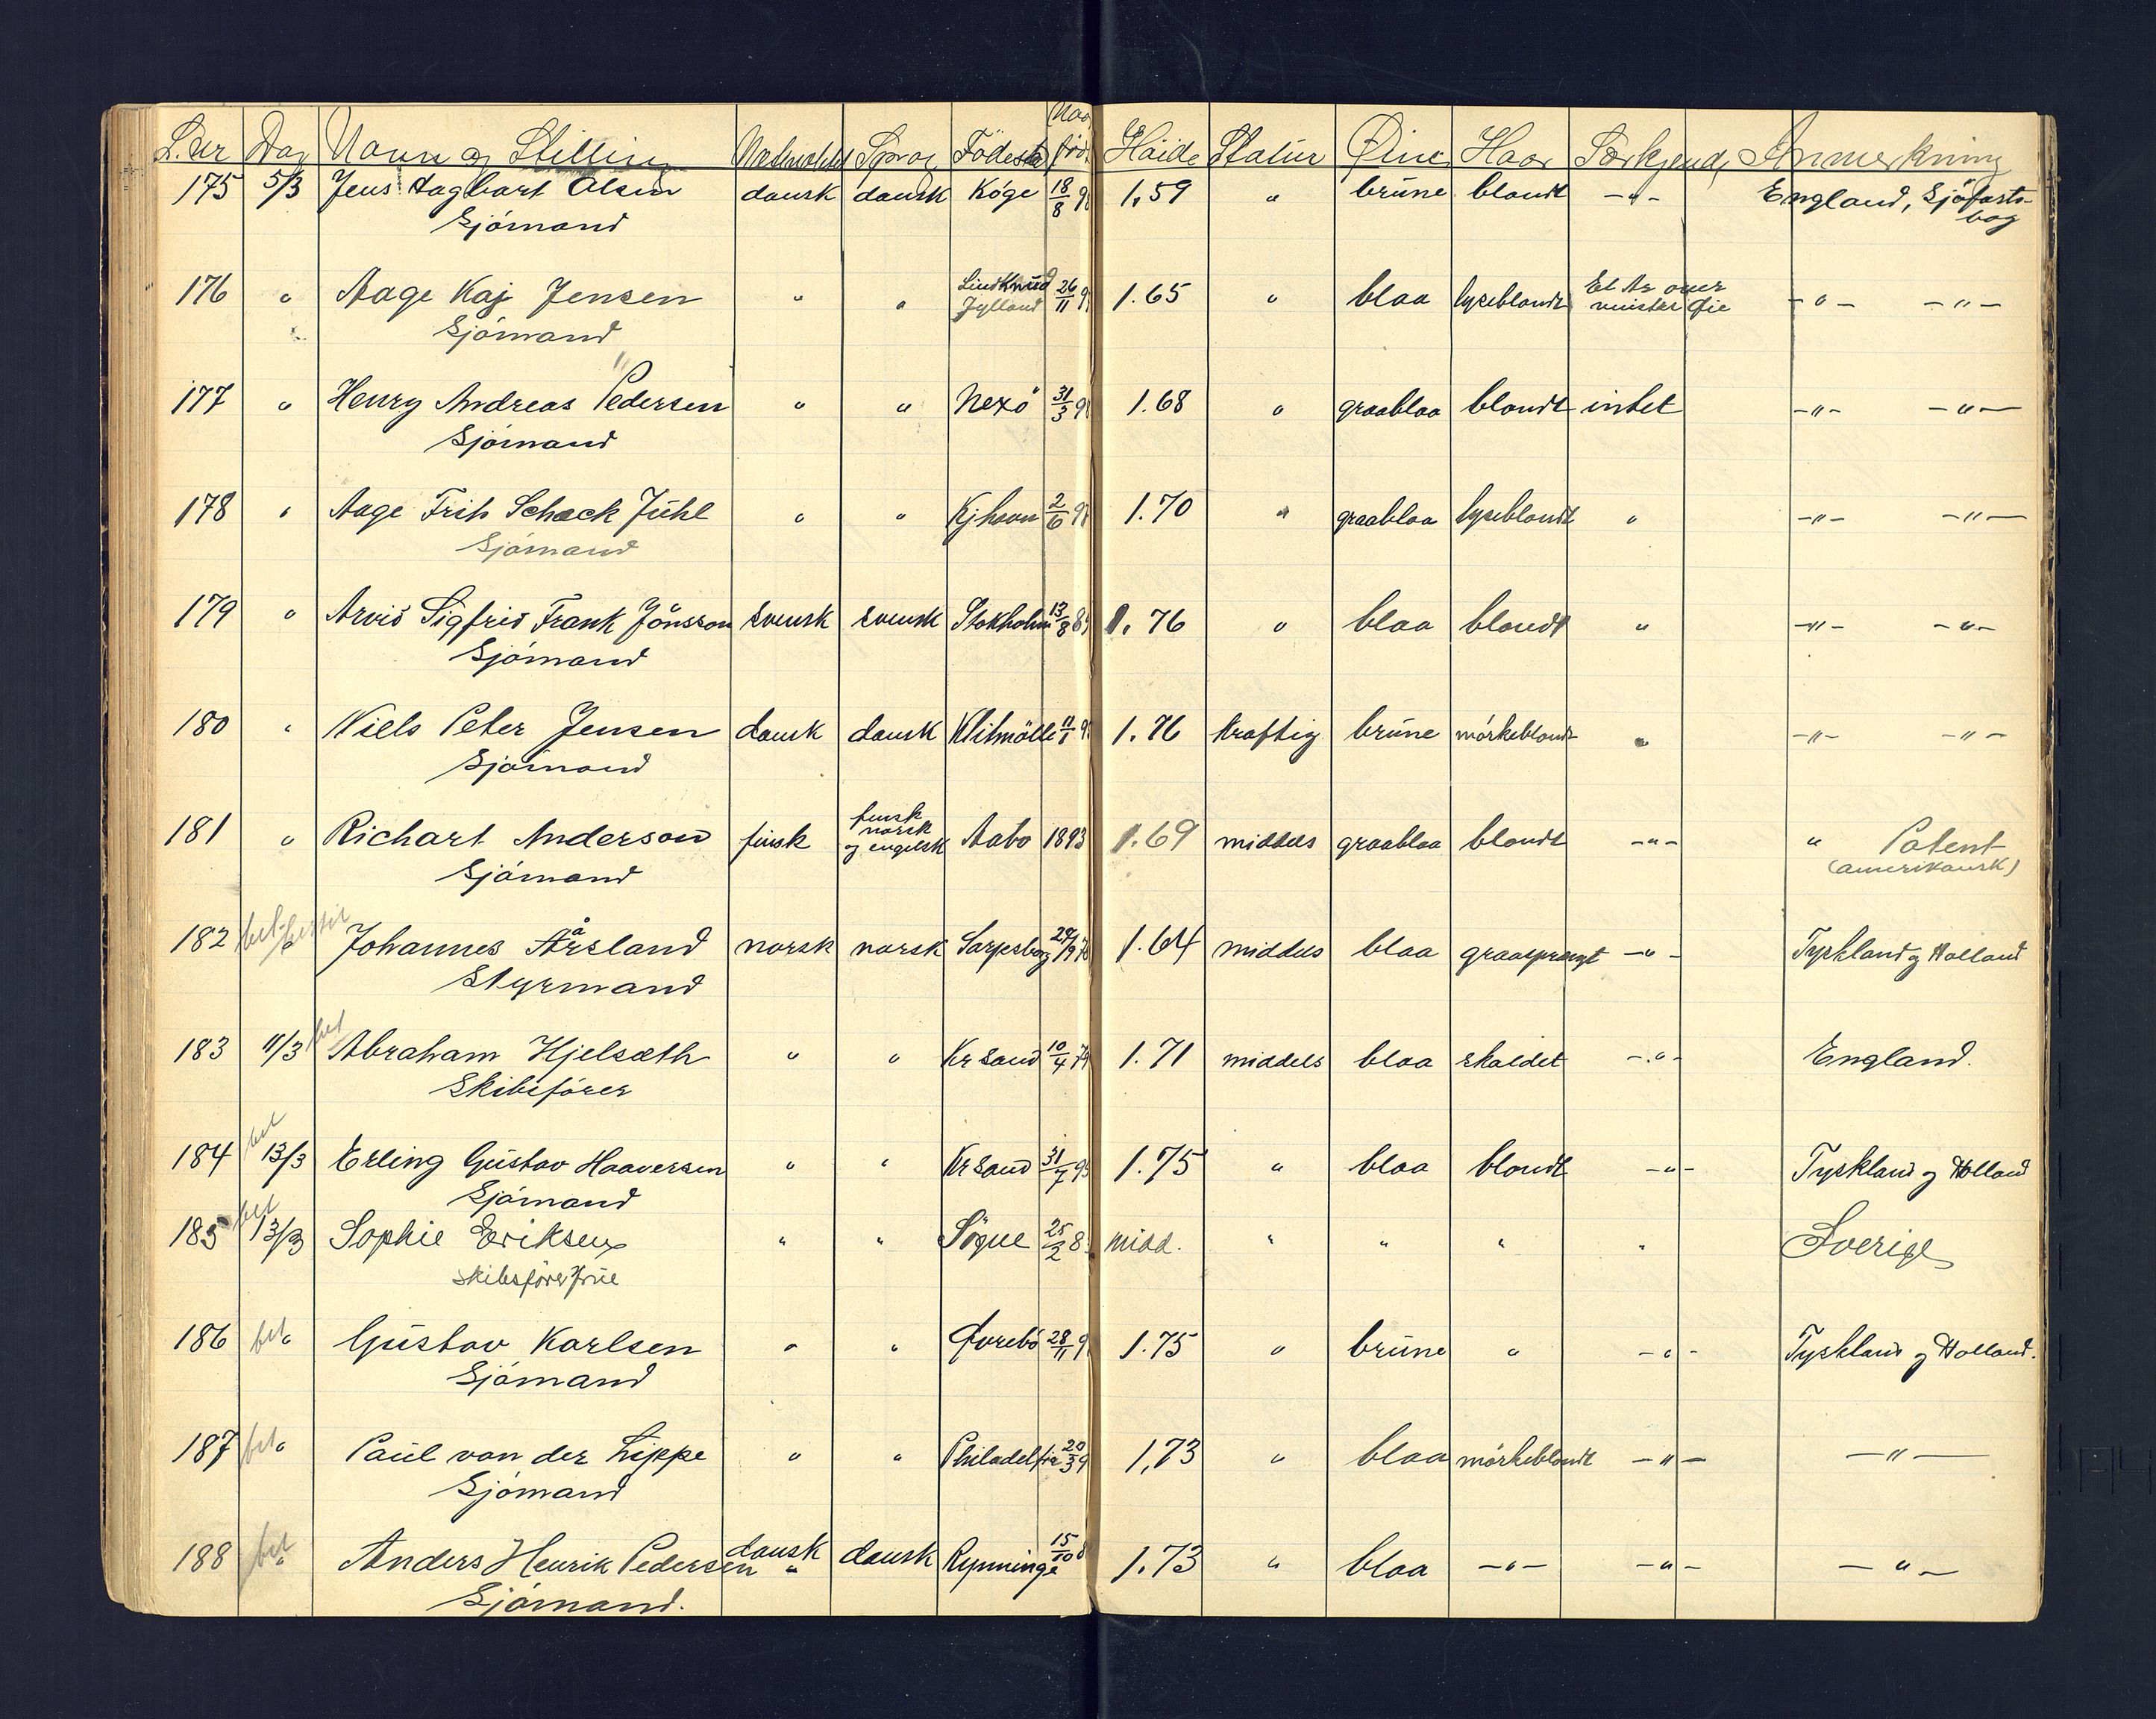 L.nr Dag Navn og Stilling Nationalitet Sprog Födested Naar född Höide Statur Øine Haar Særkjende Anmerkning
175 5/3 Jens Dagbart Olsen dansk dansk Köge 18/8 9 1,59 " brune blondt -"- England, Sjöfarts-
Sjömand bog
176 " Aage Kaj Jensen " " Lindknud Jylland 26/11 9 1.65 " blaa lyseblondt Et Ar over venster Øie -"- -"-
Sjömand
177 " Henry Andreas Pedersen " " Nexö 31/3 9 1.68 " graablaa blondt intet -"- -"-
Sjömand
178 " Aage Frih Schack Juhl " " Kjhavn 2/6 9 1.70 " graablaa lyseblondt " -"- -"-
Sjömand
179 " Arvid Sigfrid Frank Jönsson svensk svensk Stokholm 13/8 8 1.76 " blaa blondt " -"- -"-
Sjömand
180 " Niels Peter Jensen dansk dansk Klitmölle 11/1 9 1.76 kraftig brune mörkeblondt " -"- -"-
Sjömand
181 " Richart Anderson finsk finsk norsk og engelsk Aabo 1893 1.69 middels graablaa blondt -"- " Patent
Sjömand (amerikansk)
182 bet " Johannes Årsland norsk norsk Sarpsborg 24/9 7 1.64 middels blaa graasprengt -"- Tyskland og Holland
Styrmand
183 11/3 bet Abraham Hjelsæth " " Krsand 10/4 79 1.71 middels blaa skaldet -"- England.
Skibsförer
184 bet 13/3 Erling Gustav Haaversen " " Krsand 31/7 9 1.75 " blaa blondt -"- Tyskland og Holland
Sjömand
185 bet 13/3 Sophie Eriksen " " Sögne 25/2 8 midd. " " " " Sverige
Skibsförerfrue
186 bet " Gustav Karlsen " " Øvrebö 28/11 9 1.75 " brune " -"- Tyskland og Holland.
Sjömand
187 bet " Paul van der Lippe " " Philadelfia 20/3 9 1,73 " blaa mörkeblondt -"- -"-
Sjömand
188 bet " Anders Henrik Pedersen dansk " dansk Rynninge 15/10 8 1.73 " blaa -"- -"- -"-
Sjömand.